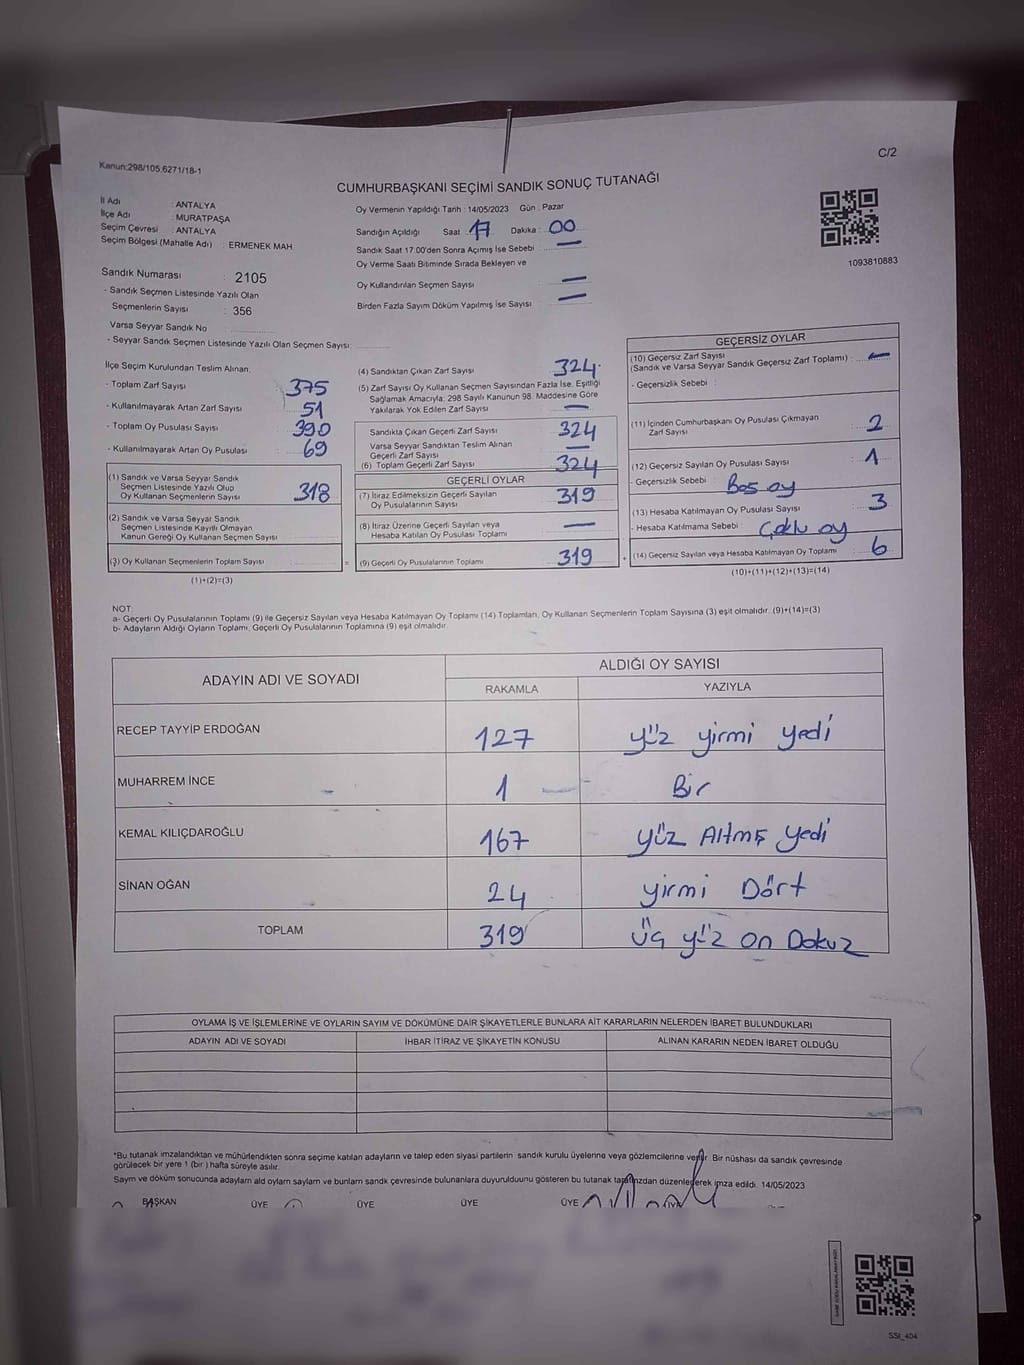 Kanun:298/105,6271/18-1
C/2
CUMHURBAŞKANI SEÇİMİ SANDIK SONUÇ TUTANAĞI
İl Adı : ANTALYA
İlçe Adı : MURATPAŞA
Seçim Çevresi : ANTALYA
Seçim Bölgesi (Mahalle Adı) : ERMENEK MAH
Sandık Numarası : 2105
- Sandık Seçmen Listesinde Yazılı Olan
Seçmenlerin Sayısı : 356
Varsa Seyyar Sandık No
- Seyyar Sandık Seçmen Listesinde Yazılı Olan Seçmen Sayısı:
Oy Vermenin Yapıldığı Tarih : 14/05/2023 Gün : Pazar
Sandığın Açıldığı Saat : 17 Dakika : 00
Sandık Saat 17:00'den Sonra Açımış İse Sebebi : —
Oy Verme Saati Bitiminde Sırada Bekleyen ve
Oy Kullandırılan Seçmen Sayısı —
Birden Fazla Sayım Döküm Yapılmış İse Sayısı —
1093810883
İlçe Seçim Kurulundan Teslim Alınan;
- Toplam Zarf Sayısı 375
- Kullanılmayarak Artan Zarf Sayısı 51
- Toplam Oy Pusulası Sayısı 390
- Kullanılmayarak Artan Oy Pusulası 69
(1) Sandık ve Varsa Seyyar Sandık
Seçmen Listesinde Yazılı Olup
Oy Kullanan Seçmenlerin Sayısı 318
(2) Sandık ve Varsa Seyyar Sandık
Seçmen Listesinde Kayıtlı Olmayan
Kanun Gereği Oy Kullanan Seçmen Sayısı
(3) Oy Kullanan Seçmenlerin Toplam Sayısı
(1)+(2)=(3)
(4) Sandıktan Çıkan Zarf Sayısı 324
(5) Zarf Sayısı Oy Kullanan Seçmen Sayısından Fazla İse, Eşitliği
Sağlamak Amacıyla; 298 Sayılı Kanunun 98. Maddesine Göre
Yakılarak Yok Edilen Zarf Sayısı —
Sandıkta Çıkan Geçerli Zarf Sayısı 324
Varsa Seyyar Sandıktan Teslim Alınan
Geçerli Zarf Sayısı —
(6) Toplam Geçerli Zarf Sayısı 324
GEÇERLİ OYLAR
(7) İtiraz Edilmeksizin Geçerli Sayılan
Oy Pusulalarının Sayısı 319
(8) İtiraz Üzerine Geçerli Sayılan veya
Hesaba Katılan Oy Pusulası Toplamı —
= (9) Geçerli Oy Pusulalarının Toplamı 319 +
GEÇERSİZ OYLAR
(10) Geçersiz Zarf Sayısı
(Sandık ve Varsa Seyyar Sandık Geçersiz Zarf Toplamı) : —
- Geçersizlik Sebebi :
(11) İçinden Cumhurbaşkanı Oy Pusulası Çıkmayan
Zarf Sayısı 2
(12) Geçersiz Sayılan Oy Pusulası Sayısı 1
- Geçersizlik Sebebi : Boş oy
(13) Hesaba Katılmayan Oy Pusulası Sayısı 3
- Hesaba Katılmama Sebebi : Çoklu oy
(14) Geçersiz Sayılan veya Hesaba Katılmayan Oy Toplamı 6
(10)+(11)+(12)+(13)=(14)
NOT:
a- Geçerli Oy Pusulalarının Toplamı (9) ile Geçersiz Sayılan veya Hesaba Katılmayan Oy Toplamı (14) Toplamları, Oy Kullanan Seçmenlerin Toplam Sayısına (3) eşit olmalıdır. (9)+(14)=(3)
b- Adayların Aldığı Oyların Toplamı, Geçerli Oy Pusulalarının Toplamına (9) eşit olmalıdır.
ADAYIN ADI VE SOYADI
ALDIĞI OY SAYISI
RAKAMLA YAZIYLA
RECEP TAYYİP ERDOĞAN 127 yüz yirmi yedi
MUHARREM İNCE 1 Bir
KEMAL KILIÇDAROĞLU 167 yüz Altmş yedi
SİNAN OĞAN 24 yirmi Dört
TOPLAM 319 üç yüz on Dokuz
OYLAMA İŞ VE İŞLEMLERİNE VE OYLARIN SAYIM VE DÖKÜMÜNE DAİR ŞİKAYETLERLE BUNLARA AİT KARARLARIN NELERDEN İBARET BULUNDUKLARI
ADAYIN ADI VE SOYADI İHBAR İTİRAZ VE ŞİKAYETİN KONUSU ALINAN KARARIN NEDEN İBARET OLDUĞU
*Bu tutanak imzalandıktan ve mühürlendikten sonra seçime katılan adayların ve talep eden siyasi partilerin sandık kurulu üyelerine veya gözlemcilerine verilir. Bir nüshası da sandık çevresinde
görülecek bir yere 1 (bir) hafta süreyle asılır.
Sayım ve döküm sonucunda adayların ald oyların sayıları ve bunların sandık çevresinde bulunanlara duyurulduunu gösteren bu tutanak tarafımızdan düzenlenerek imza edildi. 14/05/2023
BAŞKAN ÜYE ÜYE ÜYE ÜYE ÜYE
SSI_404